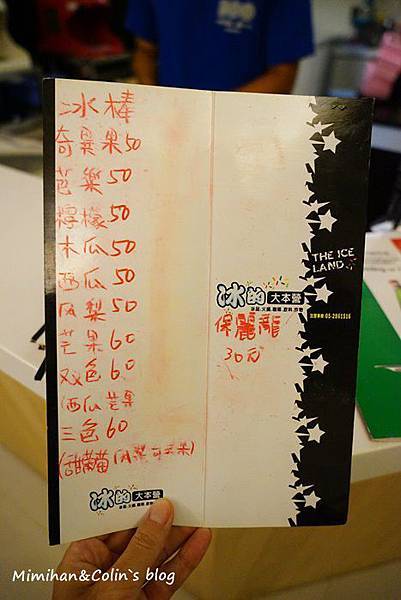 冰棒
奇異果50
芭樂50
檸檬50
木瓜50
西瓜50
鳳梨50
芒果60
双色60
(西瓜芒果
三色60
(甜葡萄鳳梨奇異果)
冰的大本營
THE ICE LAND
冰的大本營
保麗龍
30元
Mimihan&Colin`s blog